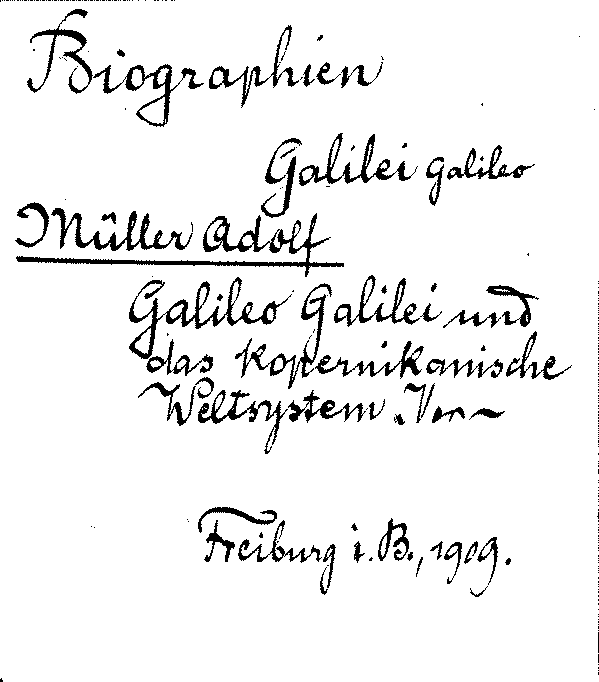 Biographien
Galilei Galileo
Müller Adolf
Galileo Galilei und
das kopernikanische
Weltsystem
Freiburg i. B., 1909.